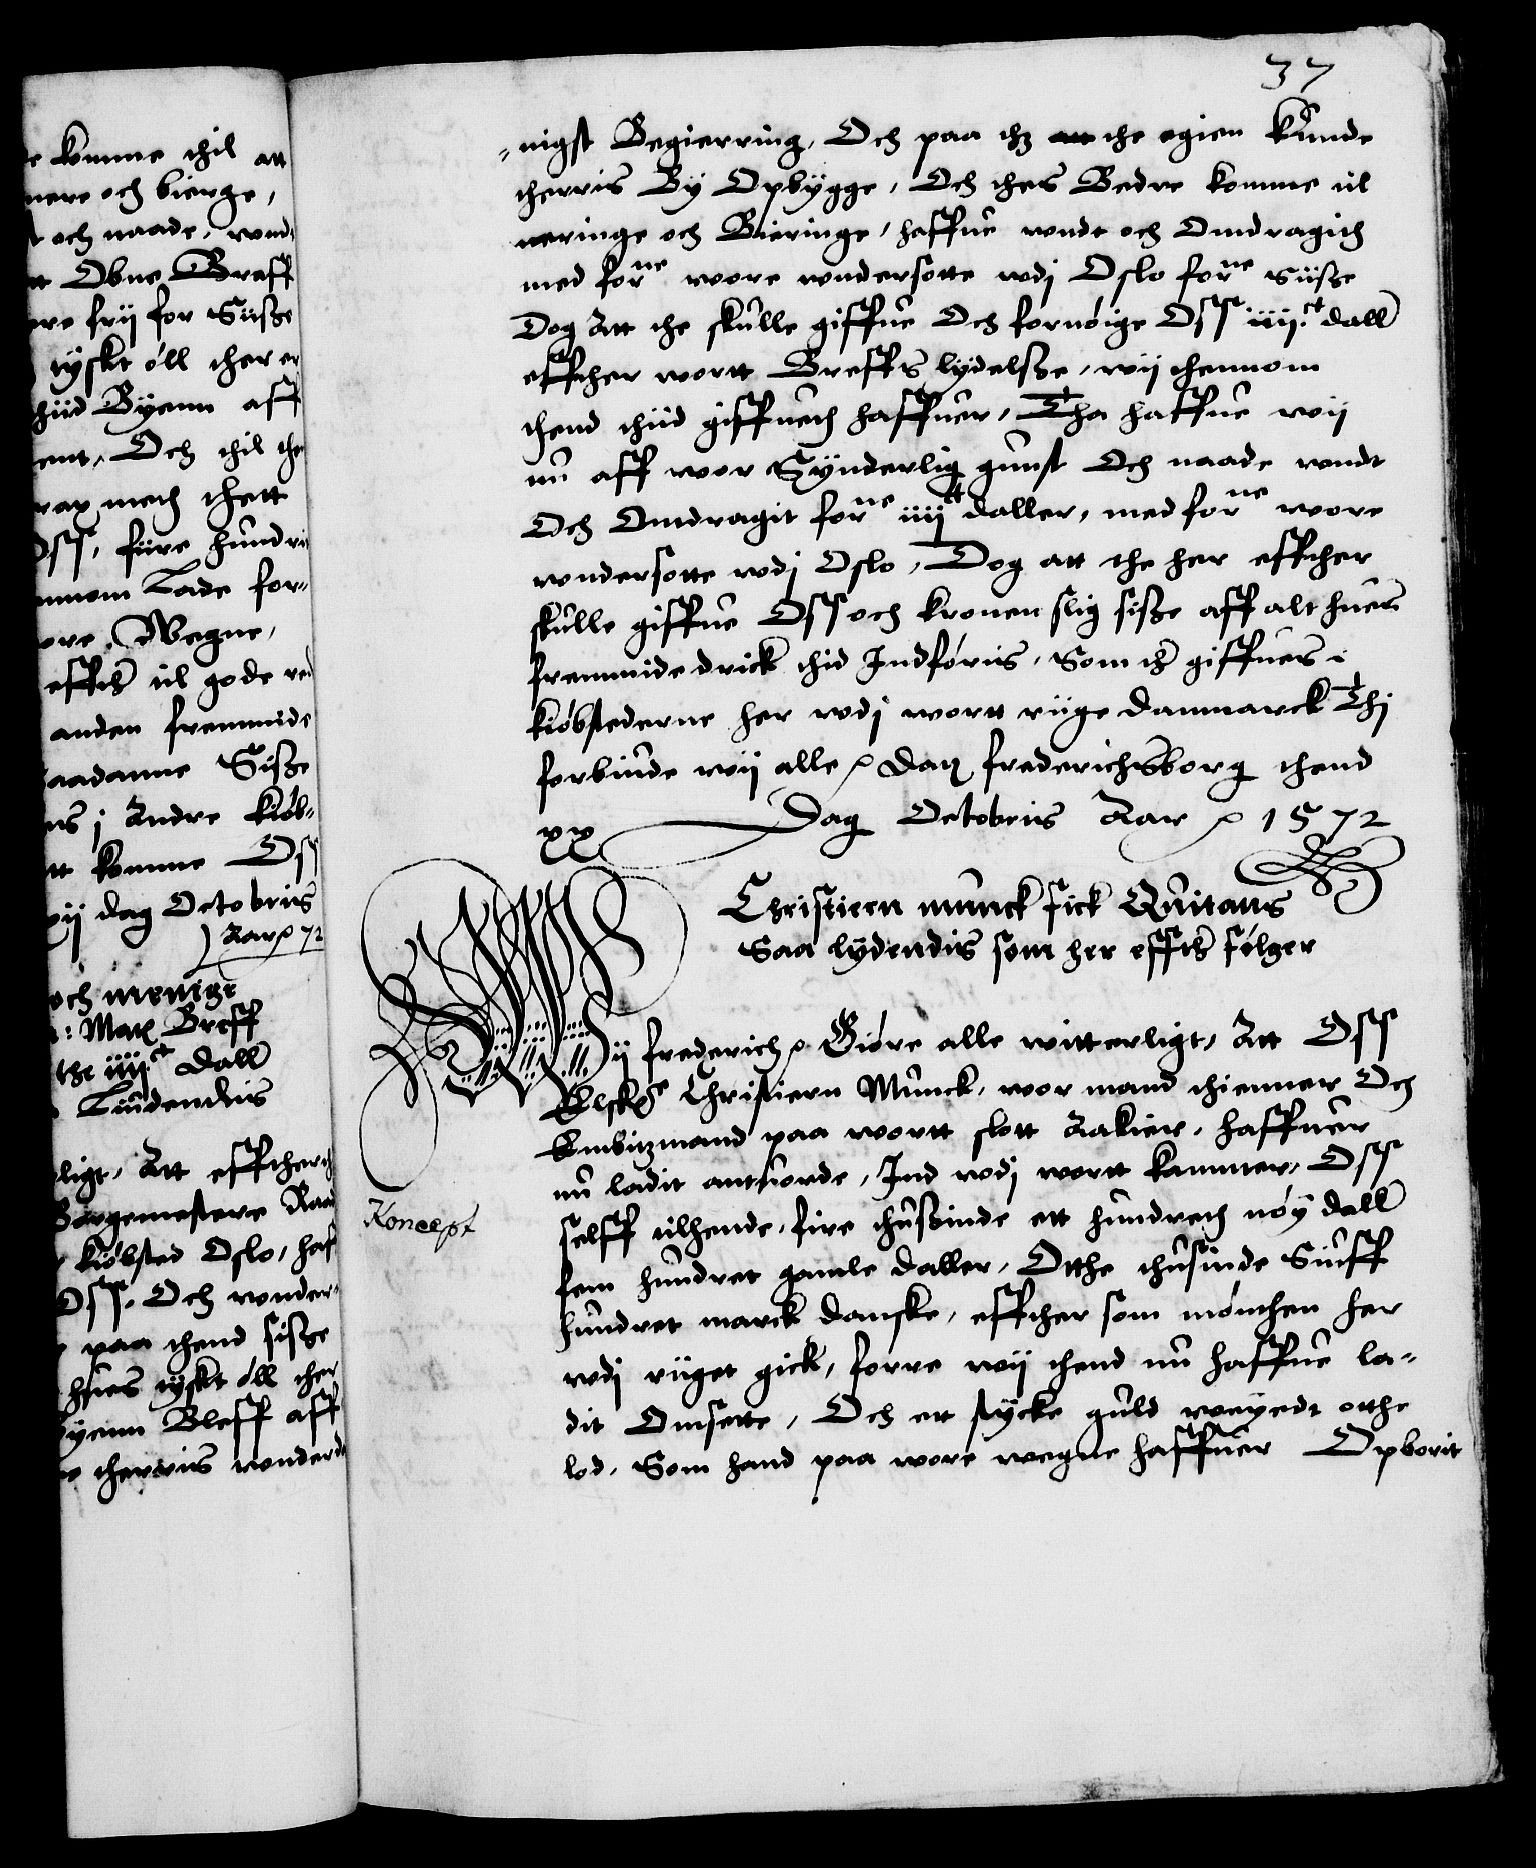 37
e komme thil att
nere och bierge,
t och naade, wnd-
tt Obne Breff
ere frij for Siisze
tyskt øll ther er
thiid Byenn aff
ent, Och thil the
rax meth thett
Oss, fiire hundrit
nnom Lade for-
ore Wegne,
effther til gode re
anden fremmide
saadanne Sisze
ers j Andre kiøb-
tt komme Oss
xij dag Octobriis
Aar 72
och menige
Mats Breff
the iiij ct Dall
Liudendis
ligt, Att effther
Borgemestere Raad
kiøbsted Oslo, haf
Oss, Och wnder-
paa thend sisze
hues tyskt øll ther
Byenn Bleff aff
e therris wnderd
-nigst Begierring, Och paa thz att the egien kunde
therris By Opbygge, Och thes Bedre komme til
neringe och Bieringe, haffue wndt och Omdragith
med forne wore wndersotte wdj Oslo forne Siisze
Dog Att the skulle giffue Och fornøige Oss iiij ct dall
effther wortt Breffs lydelsze, wij thennom
thend thiid giffueth haffuer, Tha haffue wij
nu aff wor Synderlig gunst Och naade wndt
Och Omdragit forne iiij ct daller, med forne wore
wndersotte wdj Oslo, Dog att the her effther
skulle giffue Oss och kronen slig sisze aff alt hues
fremmide drick thid Indføriis, Som ther giffues i
kiøbstederne her wdj wortt riige Danmarck Thj
forbiude wij alle Datz frederichsborg thend
xx Dag Octobriis Aar 1572
Christiern munck fick Quitans
Saa lydendis som her effther følger
Wij frederich Giøre alle witterligt, Att Oss
Elske Christiern Munck, wor mand thienner Och
Embitzmand paa wortt slott Aakier, haffuer
nu ladit antuorde, Ind wdj wortt kammer, Oss
Koncept
selff tilhende, fire thuszinde ett hundreth nøy dall
fem hundret gamle daller, Otthe thusinde Siuff
hundret marck danske, effther som mønthen her
wdj riiget gick, førre wij thend nu haffue la-
dit Omsette, Och ett stycke guld weyedt otthe
lod, Som hand paa wore wegne haffuer Opborit